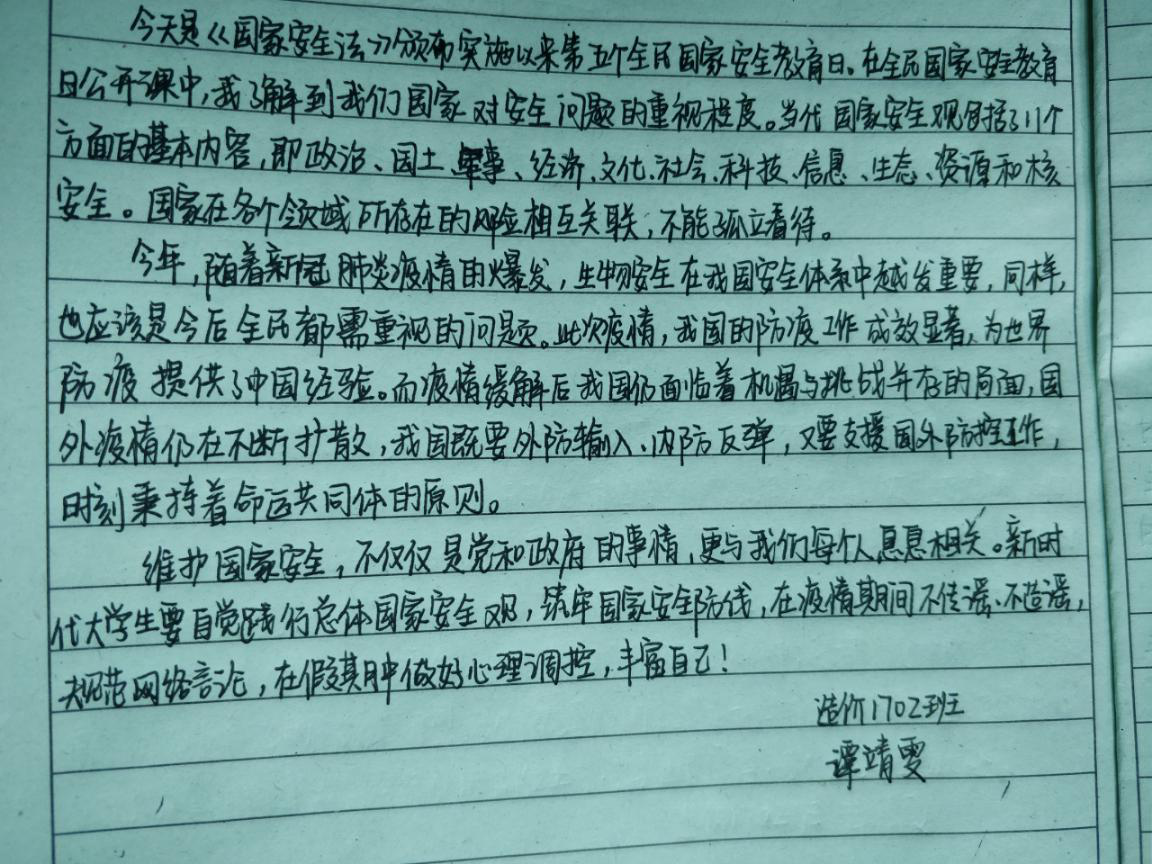 今天是《国家安全法》颁布实施以来第五个全民国家安全教育日。在全民国家安全教育
日公开课中，我了解到我们国家对安全问题的重视程度。当代国家安全观包括了11个
方面的基本内容，即政治、国土、军事、经济、文化、社会、科技、信息、生态、资源和核
安全。国家在各个领域所存在的风险相互关联，不能孤立看待。
今年，随着新冠肺炎疫情的爆发，生物安全在我国安全体系中越发重要，同样，
也应该是今后全民都需重视的问题。此次疫情，我国的防疫工作成效显著、为世界
防疫提供了中国经验。而疫情缓解后我国仍面临着机遇与挑战并存的局面，国
外疫情仍在不断扩散，我国既要外防输入、内防反弹，又要支援国外防控工作，
时刻秉持着命运共同体的原则。
维护国家安全，不仅仅是党和政府的事情，更与我们每个人息息相关。新时
代大学生要自觉践行总体国家安全观，筑牢国家安全防线，在疫情期间不传谣、不造谣，
规范网络言论，在假期中做好心理调控，丰富自己！
造价1702班
谭靖雯